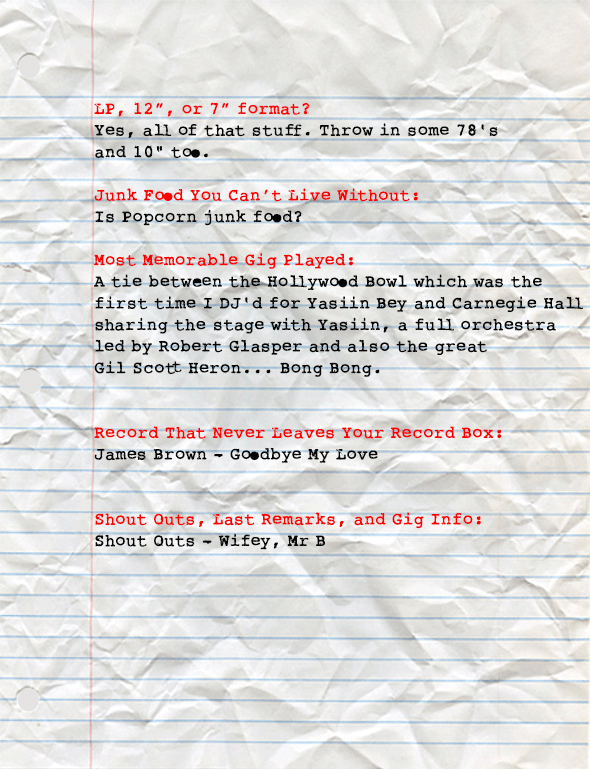 LP, 12", or 7" format?
Yes, all of that stuff. Throw in some 78's
and 10" too.
Junk Food You Can't Live Without:
Is Popcorn junk food?
Most Memorable Gig Played:
A tie between the Hollywood Bowl which was the
first time I DJ'd for Yasiin Bey and Carnegie Hall
sharing the stage with Yasiin, a full orchestra
led by Robert Glasper and also the great
Gil Scott Heron... Bong Bong.
Record That Never Leaves Your Record Box:
James Brown - Goodbye My Love
Shout Outs, Last Remarks, and Gig Info:
Shout Outs - Wifey, Mr B